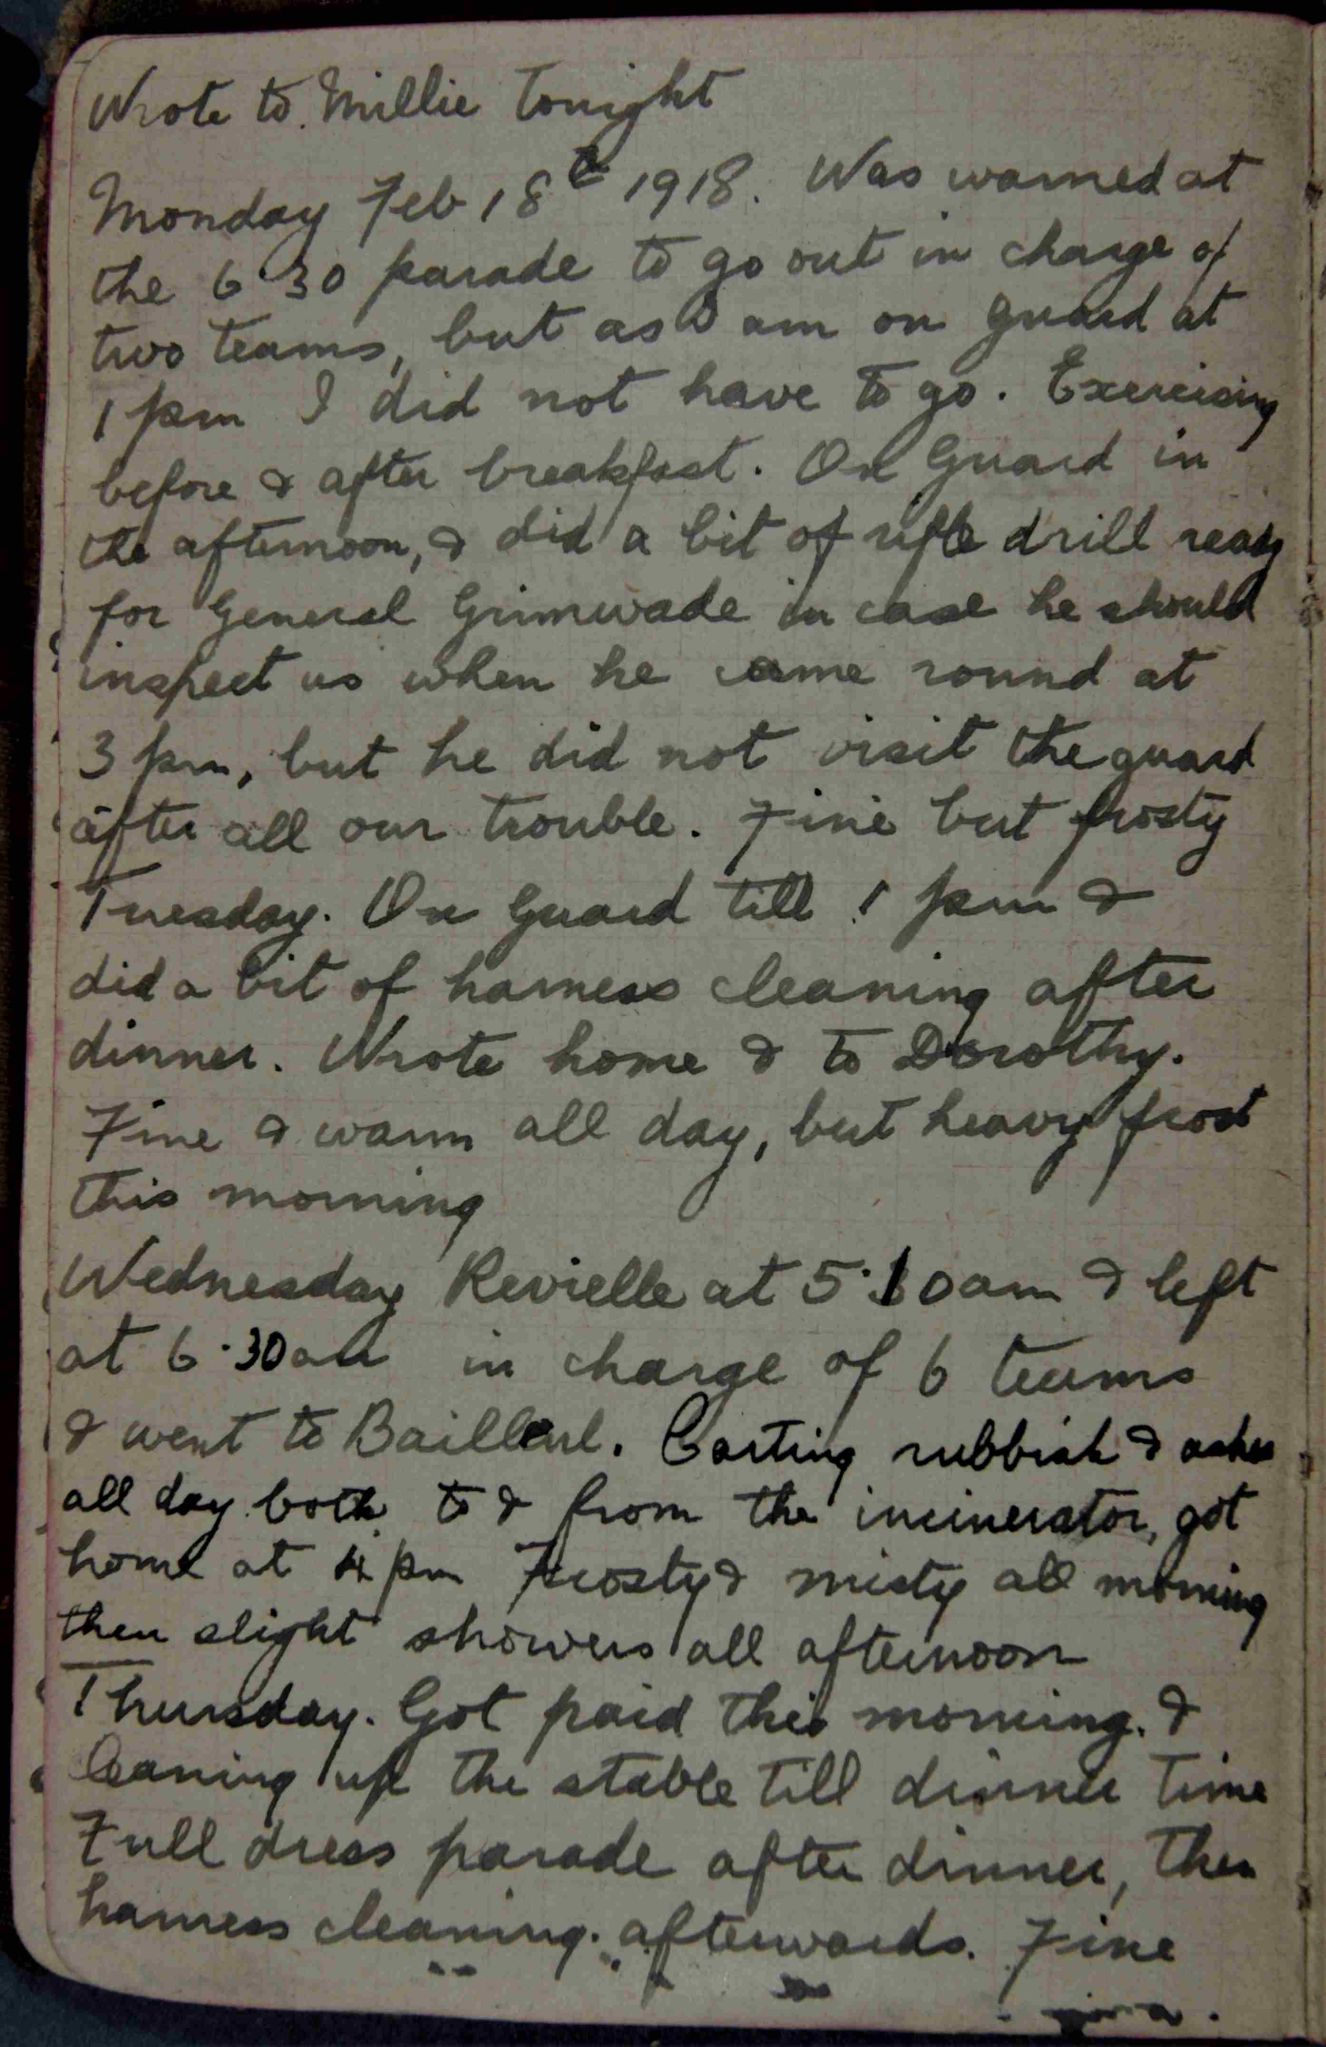 Wrote to Millie Tonight
Monday Feb 18th 1918. Was warned at
the 6.30 parade to go out in charge of
two teams, but as I am on guard at
1 pm I did not have to go. Exercising
before & after breakfast. On Guard in
the afternoon, & did a bit of rifle drill ready
for General Grimwade in case he should
inspect us when he came round at
3 pm, but he did not visit the guard
after all our trouble. Fine but frosty
Tuesday. On Guard till 1 pm &
did a bit of harness cleaning after
dinner. Wrote home & to Dorothy.
Fine & warm all day, but heavy frost
this morning
Wednesday Revielle at 5.10am & left
at 6.30am in charge of 6 teams
& went to Bailleul. Carting rubbish & ashes
all day both to & from the incinerator, got
home at 4 pm Frosty & misty all morning
then slight showers all afternoon
Thursday. Got paid this morning. &
leaning up the stable till dinner time
Full dress parade after dinner, then
harness cleaning. afterwards. Fine